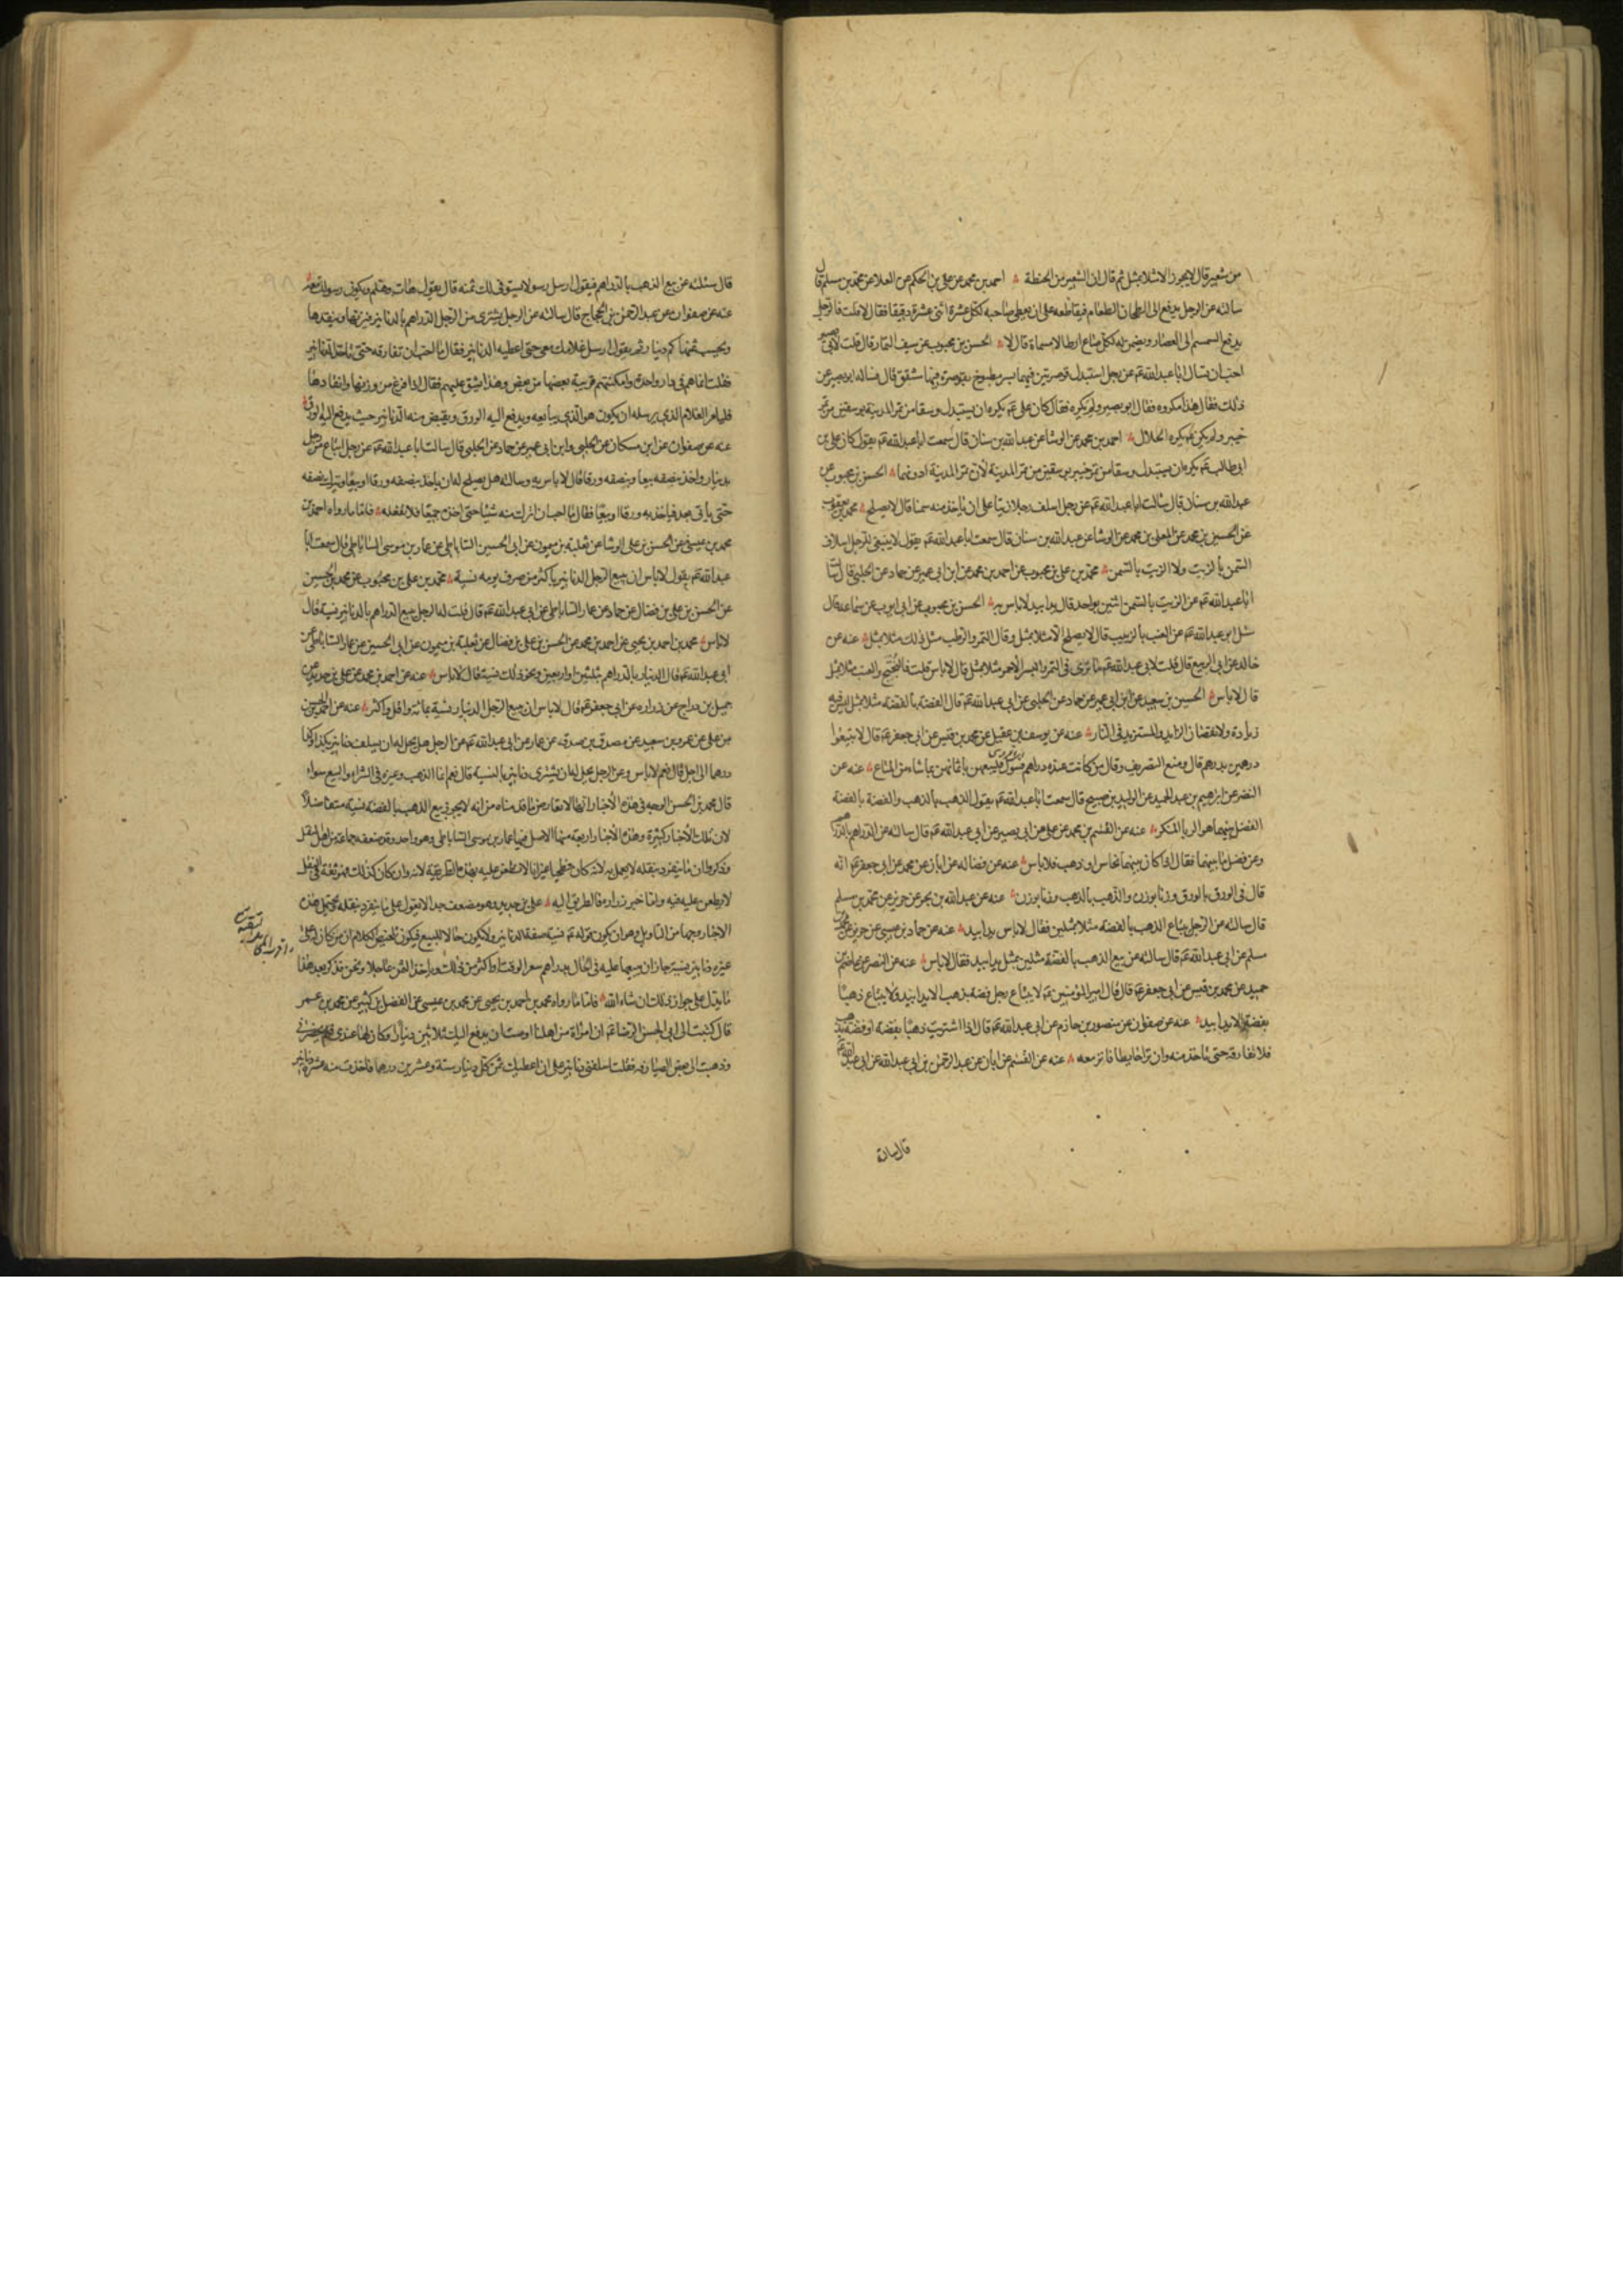 من شعير قال لا يجوز الا مثلا بمثل ثم قال ان الشعير من الحنطة احمد بن محمد عن علي بن الحكم عن العلا عن محمد بن مسلم قال
سالته عن الرجل يدفع الى الطحان الطعام فيقاطعه على ان يعطى صاحبه لكل عشرة اثنى عشرة دقيقا فقال لا قلت فالرجل
يدفع السمسم الى العصار ويضمن له لكل صاع ارطالا مسماة قال لا الحسن بن محبوب عن سيف التمار قال قلت لابي بصير
احب ان تسال ابا عبد الله عن رجل استبدل قوصرتين فيهما بسر مطبوخ بقوصرة فيها مشقق قال فساله ابو بصير عن
ذلك فقال هذا مكروه فقال ابو بصير ولم يكره فقال كان علي يكره ان يستبدل وسقا من تمر المدينة بوسقين من تمر
خيبر ولم يكن يكره الحلال احمد بن محمد عن الوشا عن عبد الله بن سنان قال سمعت ابا عبد الله يقول كان علي بن
ابي طالب يكره ان يستبدل وسقا من تمر خيبر بوسقين من تمر المدينة لان تمر المدينة ادونهما الحسن بن محبوب عن
عبد الله بن سنان قال سالت ابا عبد الله عن رجل اسلف رجلا زيتا على ان ياخذ منه سمنا قال لا يصلح محمد بن يعقوب
عن الحسين بن محمد عن المعلى بن محمد عن الوشا عن عبد الله بن سنان قال سمعت ابا عبد الله يقول لا ينبغي للرجل اسلاف
السمن بالزيت ولا الزيت بالسمن محمد بن علي بن محبوب عن احمد بن محمد عن ابن ابي عمير عن حماد عن الحلبي قال سالت
ابا عبد الله عن الزيت بالسمن اثنين بواحد قال يدا بيد لا باس به الحسن بن محبوب عن ابي ايوب عن سماعة قال
سئل ابو عبد الله عن العنب بالزبيب قال لا يصلح الا مثلا بمثل وقال التمر والرطب مثل ذلك مثلا بمثل عنه عن
خالد عن ابي الربيع قال قلت لابي عبد الله ما ترى في التمر والبسر الاحمر مثلا بمثل قال لا باس قلت فالبختج والعنب مثلا بمثل
قال لا باس الحسين بن سعيد عن ابن ابي عمير عن حماد عن الحلبي عن ابي عبد الله قال الفضة بالفضة مثلا بمثل ليس فيه
زيادة ولا نقصان الزايد والمستزيد في النار عنه عن يوسف بن عقيل عن محمد بن قيس عن ابي جعفر قال لا تبتعوا
درهمين بدرهم قال ومنع التصريف وقال من كانت عنده دراهم فسول فليبعهن باثمانهن بما شاء من المتاع عنه عن
النضر عن ابراهيم بن عبد الحميد عن الوليد بن صبيح قال سمعت ابا عبد الله يقول الذهب بالذهب والفضة بالفضة
الفضل بينهما هو الربا المنكر عنه عن القسم بن محمد عن علي عن ابي بصير عن ابي عبد الله قال سالته عن الدراهم بالدراهم
وعن فضل ما بينهما فقال اذا كان بينهما نحاس او ذهب فلا باس عنه عن فضاله عن ابان عن محمد عن ابي جعفر انه
قال في الورق بالورق وزنا بوزن والذهب بالذهب وزنا بوزن عنه عن عبد الله بن بحر عن حريز عن محمد بن مسلم
قال سالته عن الرجل يبتاع الذهب بالفضة مثلا بمثلين فقال لا باس يدا بيد عنه عن حماد بن عيسى عن حريز عن محمد بن
مسلم عن ابي عبد الله قال سالته عن بيع الذهب بالفضة مثلين بمثل يدا بيد فقال لا باس عنه عن النضر عن عاصم بن
حميد عن محمد بن قيس عن ابي جعفر قال قال امير المؤمنين لا يبتاع رجل فضة بذهب الا يدا بيد ولا يبتاع ذهبا
بفضة الا يدا بيد عنه عن صفوان عن منصور بن حازم عن ابي عبد الله قال اذا اشتريت ذهبا بفضة او فضة بذهب
فلا تفارقه حتى تاخذ منه وان نزا حايطا فانز معه عنه عن القسم عن ابان عن عبد الرحمن بن ابي عبد الله عن ابي عبد الله
قال سالته
قال سئلته عن بيع الذهب بالدراهم فيقول ارسل رسولا يستوفي لك ثمنه قال يقول هات وهلم ويكون رسولك معه
عنه عن صفوان عن عبد الرحمن بن الحجاج قال سالته عن الرجل يشتري من الرجل الدراهم بالدنانير فيزنها وينقدها
ويحسب ثمنها كم دينار ثم يقول ارسل غلامك معي حتى اعطيه الدنانير فقال ما احب ان تفارقه حتى تاخذ الدنانير
فقلت انما هم في دار واحدة وامكنتهم قريبة بعضها من بعض وهذا يشق عليهم فقال اذا فرغ من وزنها وانقادها
فليامر الغلام الذي يرسله ان يكون هو الذي يبايعه ويدفع اليه الورق ويقبض منه الدنانير حيث يدفع اليه الورق
عنه عن صفوان عن ابن مسكان عن الحلبي وابن ابي عمير عن حماد عن الحلبي قال سالت ابا عبد الله عن رجل ابتاع من رجل
بدينار واخذ بنصفه بيعا وبنصفه ورقا قال لا باس به وسالته هل يصلح له ان ياخذ بنصفه ورقا او بيعا ويترك نصفه
حتى ياتي بعد فياخذ به ورقا او بيعا فقال ما احب ان اترك منه شيئا حتى اخذه جميعا فلا يفعله فاما ما رواه احمد بن
محمد بن عيسى عن الحسن بن علي الوشا عن ثعلبة بن ميمون عن ابي الحسين الساباطي عن عمار بن موسى الساباطي قال سمعت ابا
عبد الله يقول لا باس ان يبيع الرجل الدنانير باكثر من صرف يومه نسية محمد بن علي بن محبوب عن محمد بن الحسين
عن الحسن بن علي بن فضال عن حماد عن عمار الساباطي عن ابي عبد الله قال قلت له الرجل يبيع الدراهم بالدنانير نسية قال
لا باس محمد بن احمد بن يحيى عن احمد بن محمد عن الحسن بن علي بن فضال عن ثعلبة بن ميمون عن ابي الحسين عن عمار الساباطي عن
ابي عبد الله قال الدينار بالدراهم بثلثين او اربعين ونحو ذلك نسية قال لا باس عنه عن احمد بن محمد عن علي بن حديد عن
جميل بن دراج عن زراره عن ابي جعفر قال لا باس ان يبيع الرجل الدينار نسية بمائة واقل واكثر عنه عن احمد بن الحسن
بن علي عن عمرو بن سعيد عن مصدق بن صدقه عن عمار عن ابي عبد الله عن الرجل هل يحل له ان يسلف دنانير بكذا وكذا
درهما الى اجل قال نعم لا باس وعن الرجل يحل له ان يشتري دنانير بالنسية قال نعم انما الذهب وغيره في الشراء والبيع سواء
قال محمد بن الحسن الوجه في هذه الأخبار انها لا تعارض ما قدمناه من انه لا يجوز بيع الذهب بالفضة نسية متفاضلا
لان تلك الأخبار كثيرة وهذه الأخبار اربعة منها الاصل فيها عمار بن موسى الساباطي وهو واحد وقد ضعفه جماعة من اهل النقل
وذكروا ان ما ينفرد بنقله لا يعمل به لانه كان فطحيا غير انا لا نطعن عليه بهذه الطريقة لانه وان كان كذلك فهو ثقة في النقل
لا يطعن عليه فيه واما خبر زراره فالطريق اليه علي بن حديد وهو مضعف جدا لا يعول على ما ينفرد بنقله محتمل هذه
الاخبار وجها من التاويل وهو ان يكون قوله نسية صفة للدنانير ولا يكون حالا للبيع فيكون تلخيص الكلام ان من كان له على
غيره دنانير نسية جاز ان يبيعها عليه في الحال بدراهم سعر الوقت او اكثر من ذلك وياخذ الثمن عاجلا ونحن نذكر بعد هذا
ما يدل على جواز ذلك ان شاء الله فاما ما رواه محمد بن احمد بن يحيى عن محمد بن عيسى عن الفضل بن كثير عن محمد بن عمر
قال كتبت الى ابي الحسن الرضا ان امراة من اهلنا اوصت ان يدفع اليك ثلاثين دينارا وكان لها عندي فلم يحضرني
وذهبت الى بعض الصيارفه فقلت اسلفني دنانير على ان اعطيك ثمن كل دينار ستة وعشرين درهما فاخذت منه عشرة دنانير